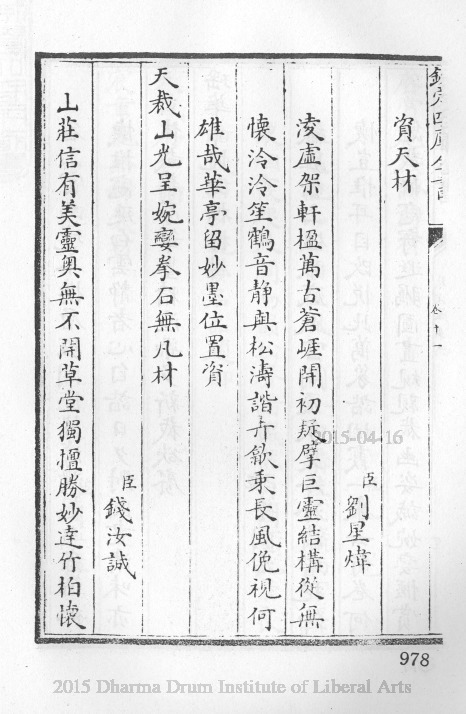 欽定四庫全書
卷十一
資天材
臣劉星煒
淩虛架軒楹萬古蒼崕開初疑擘巨靈結構從無
懷泠泠笙鶴音静與松濤諧歘乗長風俛視何
雄哉華亭留妙墨位置資
天裁山光呈婉孌拳石無凡材
臣錢汝誠
山莊信有美靈奥無不開草堂獨擅勝妙達竹柏懷
2015-04-16
978
2015 Dharma Drum Institute of Liberal Arts